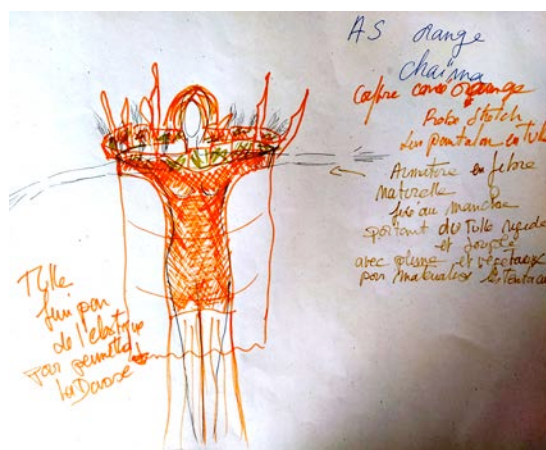 AS orange
chaïma
Coiffe cave orange
Robe stretch
sur pantalon en tulle
Armature en fibre
naturelle
fixé au manche
portant du tulle rigide
et souple
avec plume et végétaux
pour matérialiser les tentacu
Tulle
fini par
de l'elastique
pour permettre
la Danse